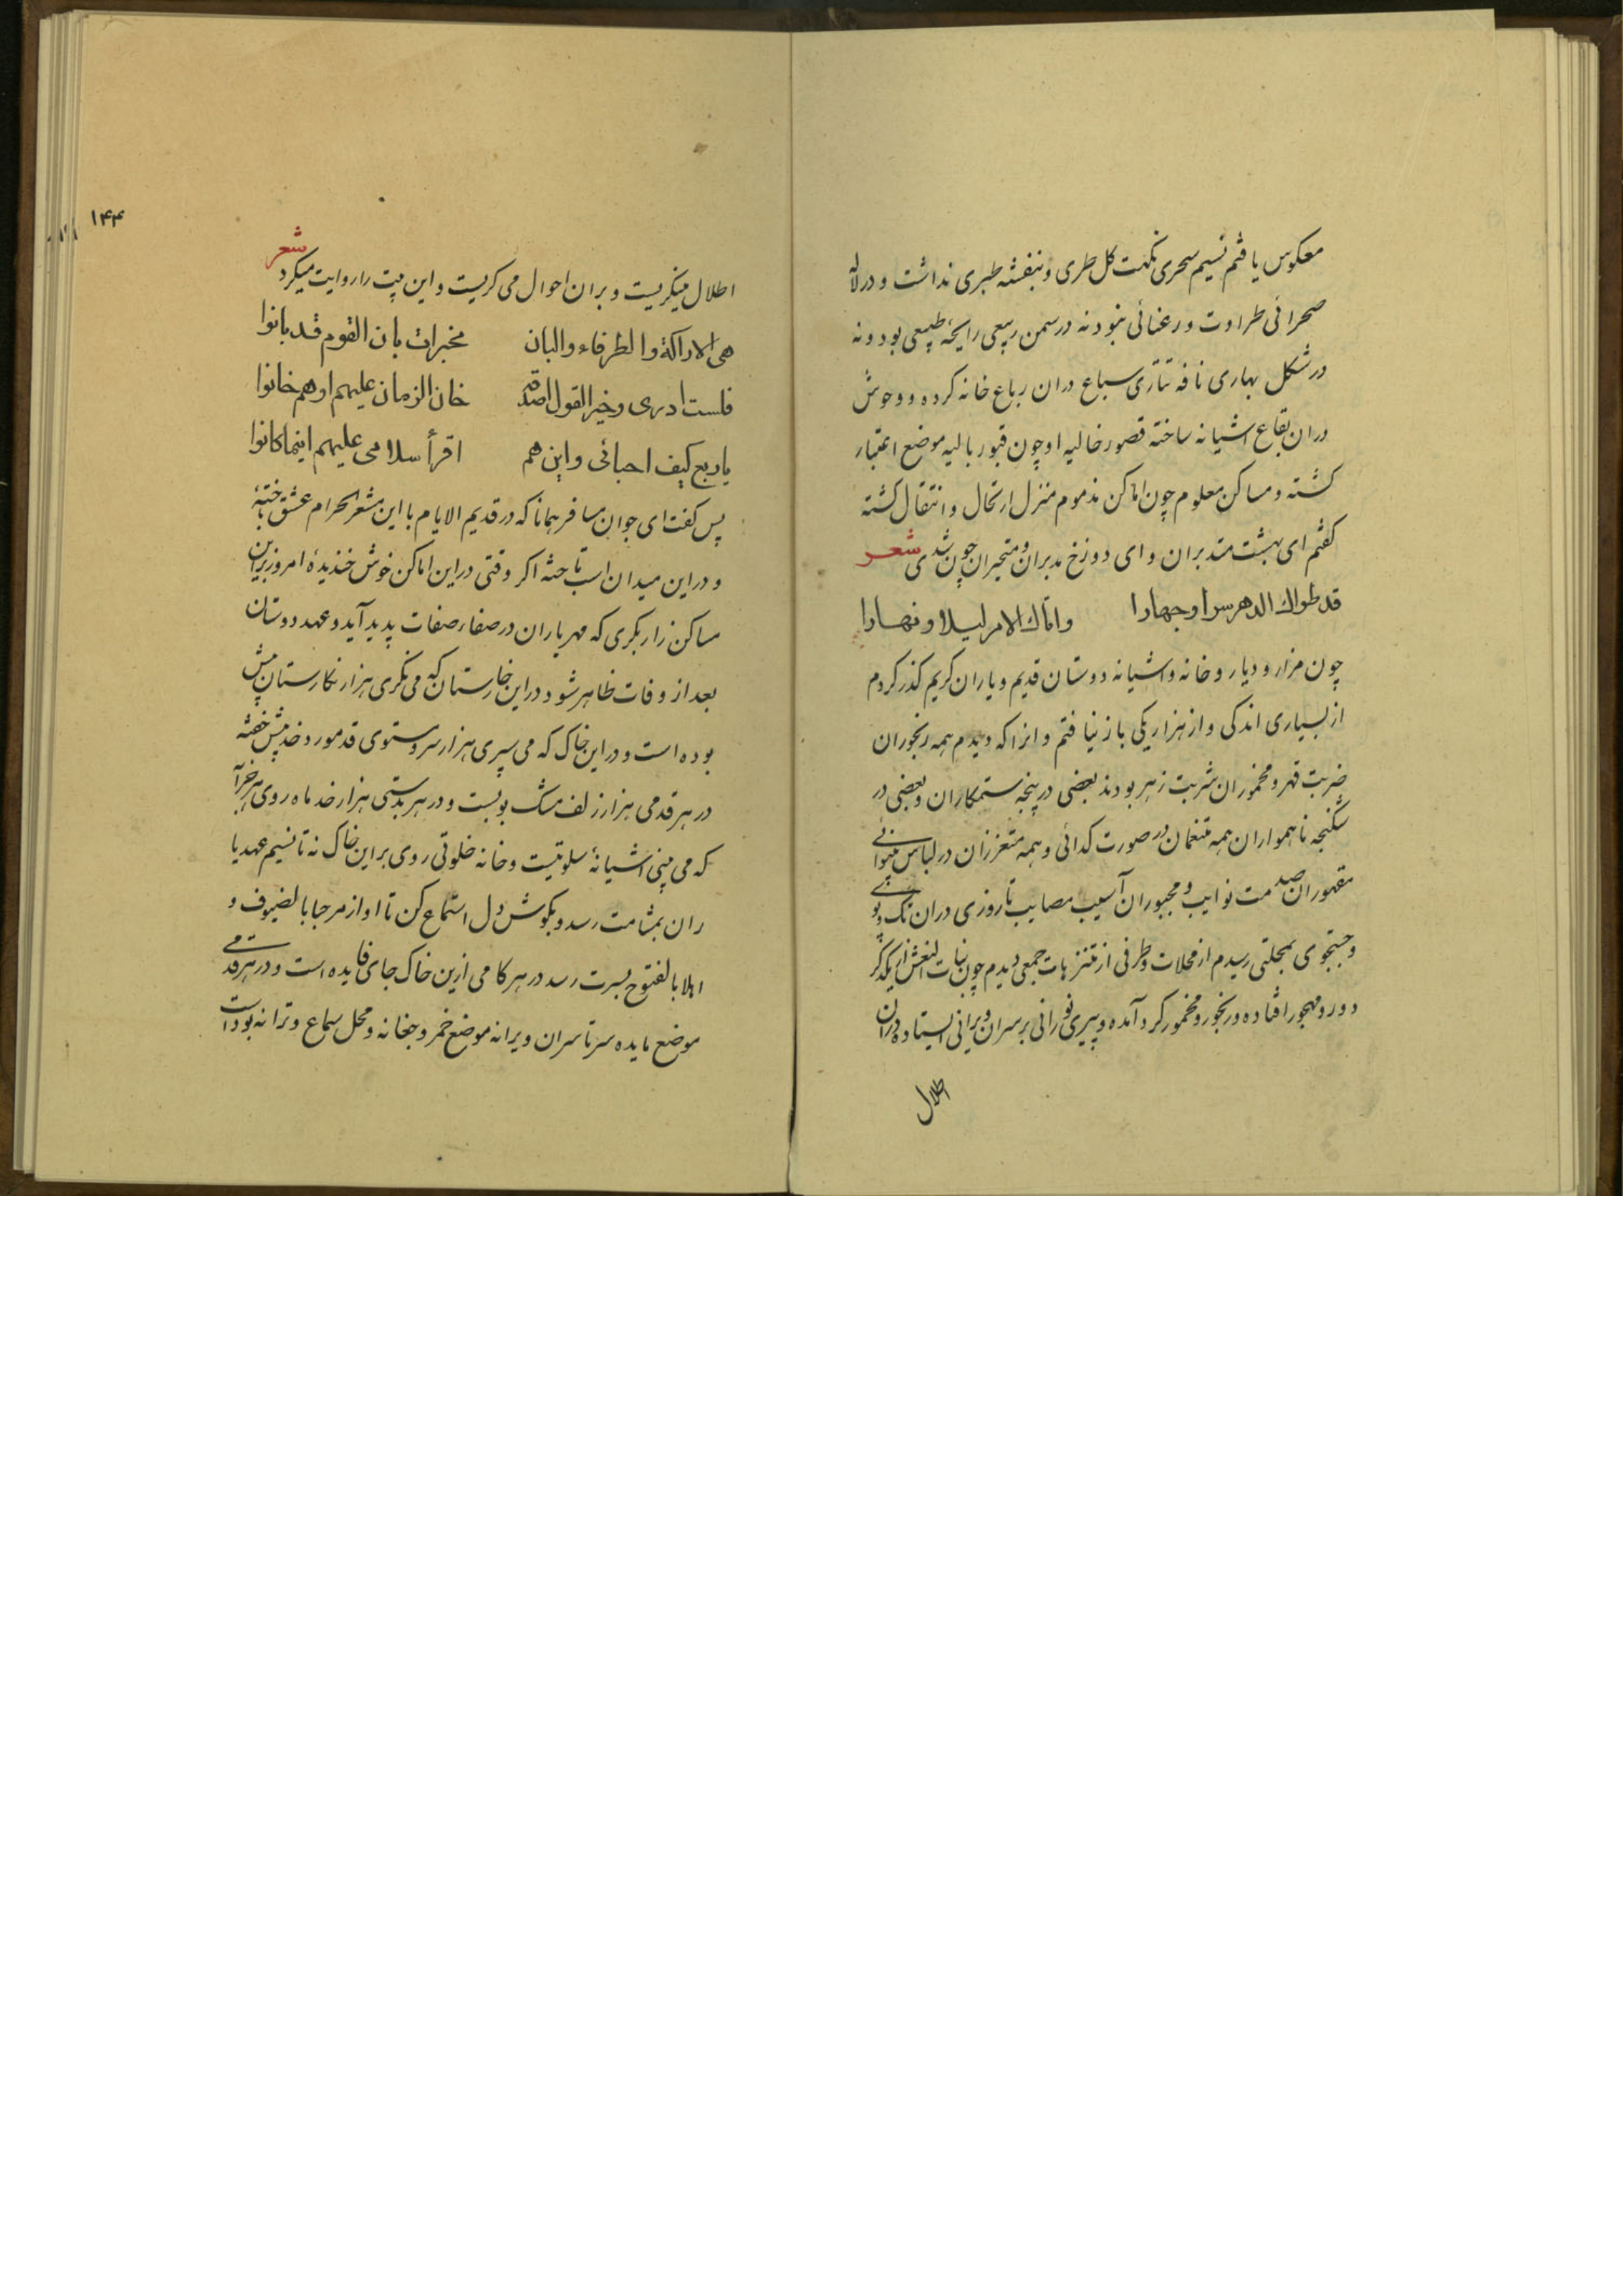 معکوس یافتم نسیم سحری نکهت کل طری و بنفشه طبری نداشت و در لاله
صحرائی طراوت و رعنائی نبود نه در سمن ربیعی رایحه طبیعی بود و نه
در شکل بهاری نافه تتاری سباع دران رباع خانه کرده و وحوش
دران بقاع اشیانه ساخته قصور خالیه او چون قبور بالیه موضع اعتبار
کشته و مساکن معلوم چون اماکن مذموم منزل ارتحال و انتقال کشته
کفتم ای بهشت متدبران و ای دوزخ مدبران و متحیران چون شدی شعر
قد طواك الدهر سرا وجهارا واتاك الامر ليلا ونهارا
چون مزار و دیار و خانه و اشیانه دوستان قدیم و یاران کریم کذر کردم
از بسیاری اندکی و از هزار یکی باز نیافتم و انرا که دیدم همه رنجوران
ضربت قهر و مخموران شربت زهر بودند بعضی در پنجه ستمکاران و بعضی در
شکنجه ناهمواران همه متنعمان در صورت کدائی و همه متعززان در لباس بینوائی
مقهوران صدمت نوایب و مجبوران آسیب مصایب تا روزی دران تک و پوی
و جستجوی بمحلتی رسیدم از محلات و طرفی از متنزهات جمعی دیدم چون بنات النعش از یکدکر
دور و مهجور افتاده و رنجور و مخمور کرد آمده و پیری نورانی بر سران ویرانی ایستاده دران
اطلال
۱۴۴
اطلال مینکریست و بران احوال می کریست و این بیت را روایت میکرد شعر
هی الاراکة والطرفاء والبان مخبرات بان القوم قد بانوا
فلست ادری وخیر القول اصدقه خان الزمان علیهم او هم خانوا
یا ربع کیف احبائی واین هم اقرأ سلامی علیهم اینما کانوا
پس کفت ای جوان مسافر همانا که در قدیم الایام با این مشعر الحرام عشق باخته
و در این میدان اسب تاخته اکر وقتی در این اماکن خوش خندیدۀ امروز براین
مساکن زار بکری که مهر یاران در صفاء صفات پدید آید و عهد دوستان
بعد از وفات ظاهر شود در این خارستان که می نکری هزار نکارستان پیش
بوده است و در این خاک که می سپری هزار سرو ستوی قد مورد خد پیش خفته
در هر قدمی هزار زلف مشک بویست و در هر بدستی هزار خد ماه روی هر خرابه
که می بینی اشیانۀ سلوتیست و خانه خلوتی روی بر این خاک نه تا نسیم عهد یا
ران بمشامت رسد و بکوش دل استماع کن تا اواز مرحبا بالضیوف و
اهلا بالفتوح بسرت رسد در هر کامی ازین خاک جای فایده است و در هر قدمی
موضع مایده سرتاسر ان ویرانه موضع خمر و چغانه و محل سماع و ترانه بوداست